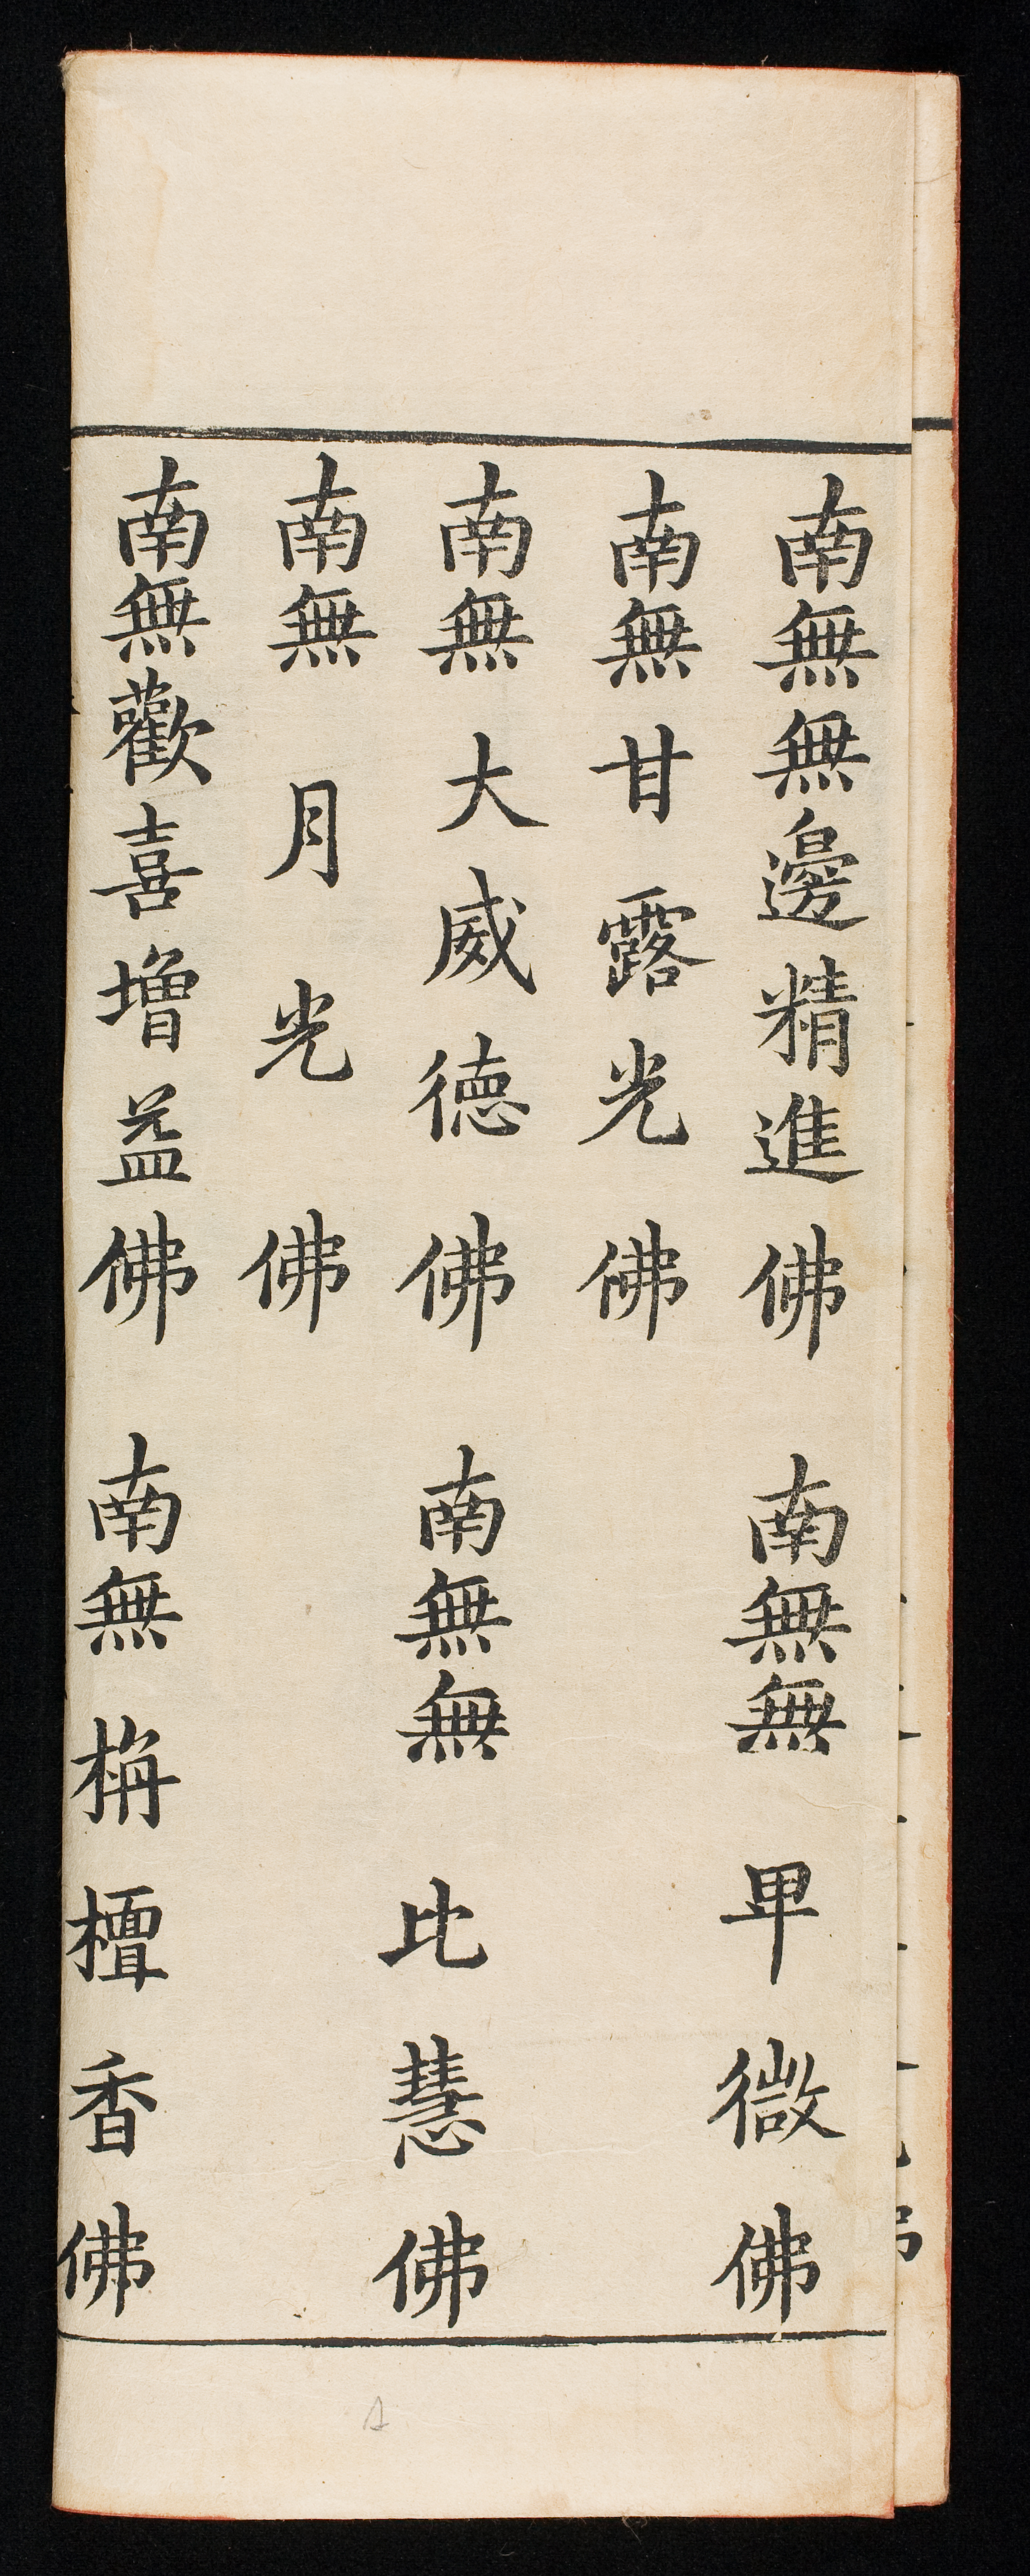 南無無邊精進佛 南無無卑微佛
南無甘露光佛
南無大威德佛 南無無比慧佛
南無月光佛
南無歡喜增益佛 南無栴檀香佛